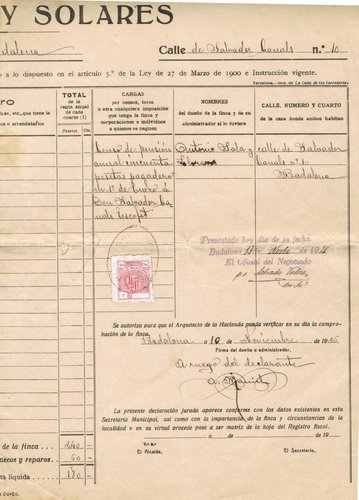 Y SOLARES
Badalona Calle de Salvador Canals n.º 10
o a lo dispuesto en el artículo 5.º de la Ley de 27 de Marzo de 1900 e Instrucción vigente.
TOTAL
de la
renta anual
de cada
cuarto (1)
Pesetas Cts.
CARGAS
por censos, foros
u otra cualquiera imposición
que tenga la finca y
corporaciones e individuos
a quienes se paguen
NOMBRES
del dueño de la finca y de su
administrador si lo tuviere
CALLE, NUMERO Y CUARTO
de la casa donde ambos habitan
Censo de pensión
anual cincuenta
pesetas pagadero
en 1º de Enero á
Don Salvador Ca
nals
Antonio Sala y
calle de Salvador
Canals nº 10
Badalona
Presentado hoy día de la fecha.
Badalona de 19
El Oficial del Negociado
Se autoriza para que el Arquitecto de Hacienda pueda verificar en su día la compro-
bación de la finca.
Badalona a 10 de Noviembre de 1926
Firma del dueño o administrador.
A ruego del declarante
La presente declaración jurada aparece conforme con los datos existentes en esta
Secretaría Municipal, así como con la importancia de la finca y circunstancias de la
localidad y en su virtud procede pase a ser matriz de la hoja del Registro fiscal.
a de de 19
V.º B.º
El Alcalde,
El Secretario,
de la finca 240
huecos y reparos 60
ta líquida 180